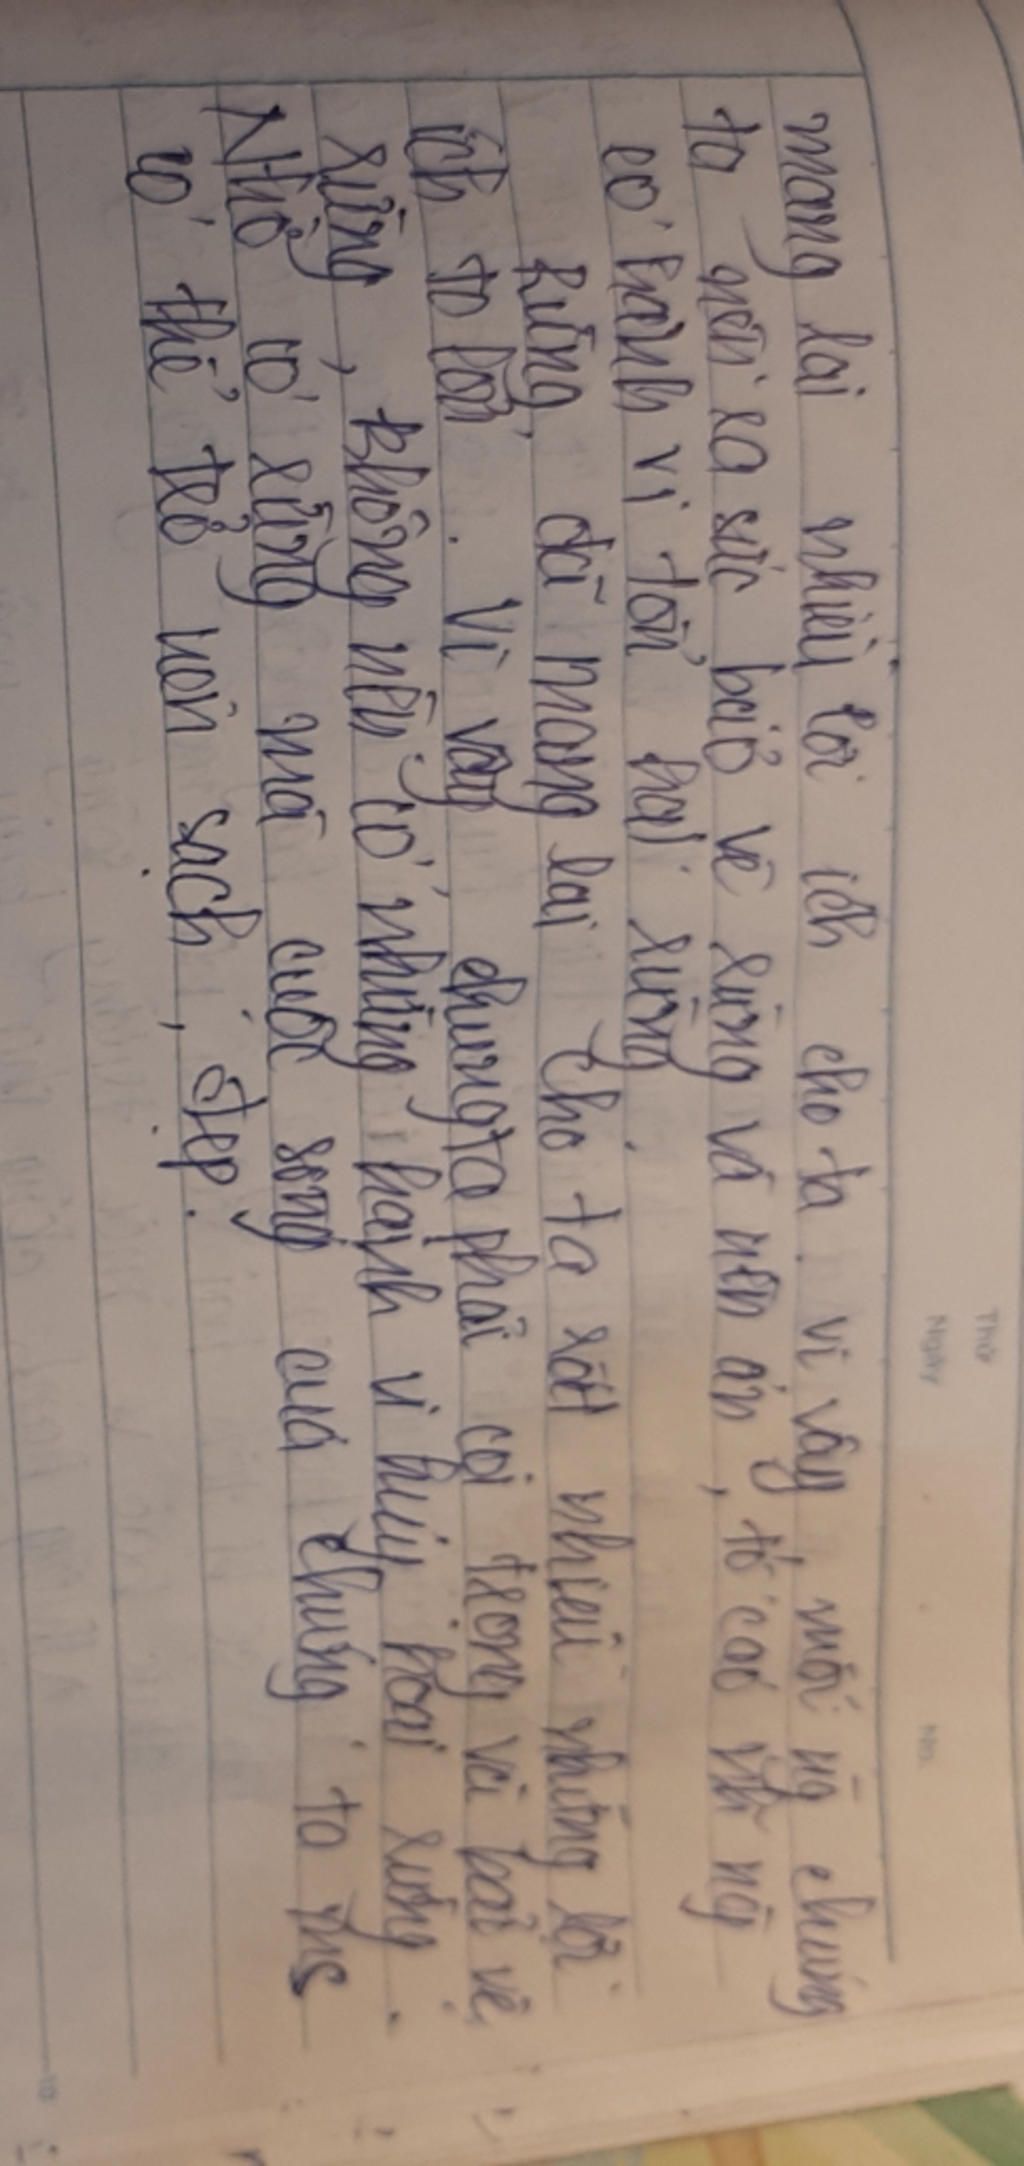 Thứ
Ngày
No.
mang lại nhiều lợi ích cho ta. vì vậy, mỗi ng chúng
ta nên ra sức bảo vệ rừng và nên án, tố cáo nh ng
có hành vi tổn hại rừng.
Rừng, đã mang lại cho ta rất nhiều những lợi
ích to lớn. Vì vậy, chúng ta phải coi trọng và bảo vệ
rừng, không nên có những hành vi hủy hoại rừng.
Nhờ có rừng mà cuộc sống của chúng ta ms
có thể trở nên sạch, đẹp.